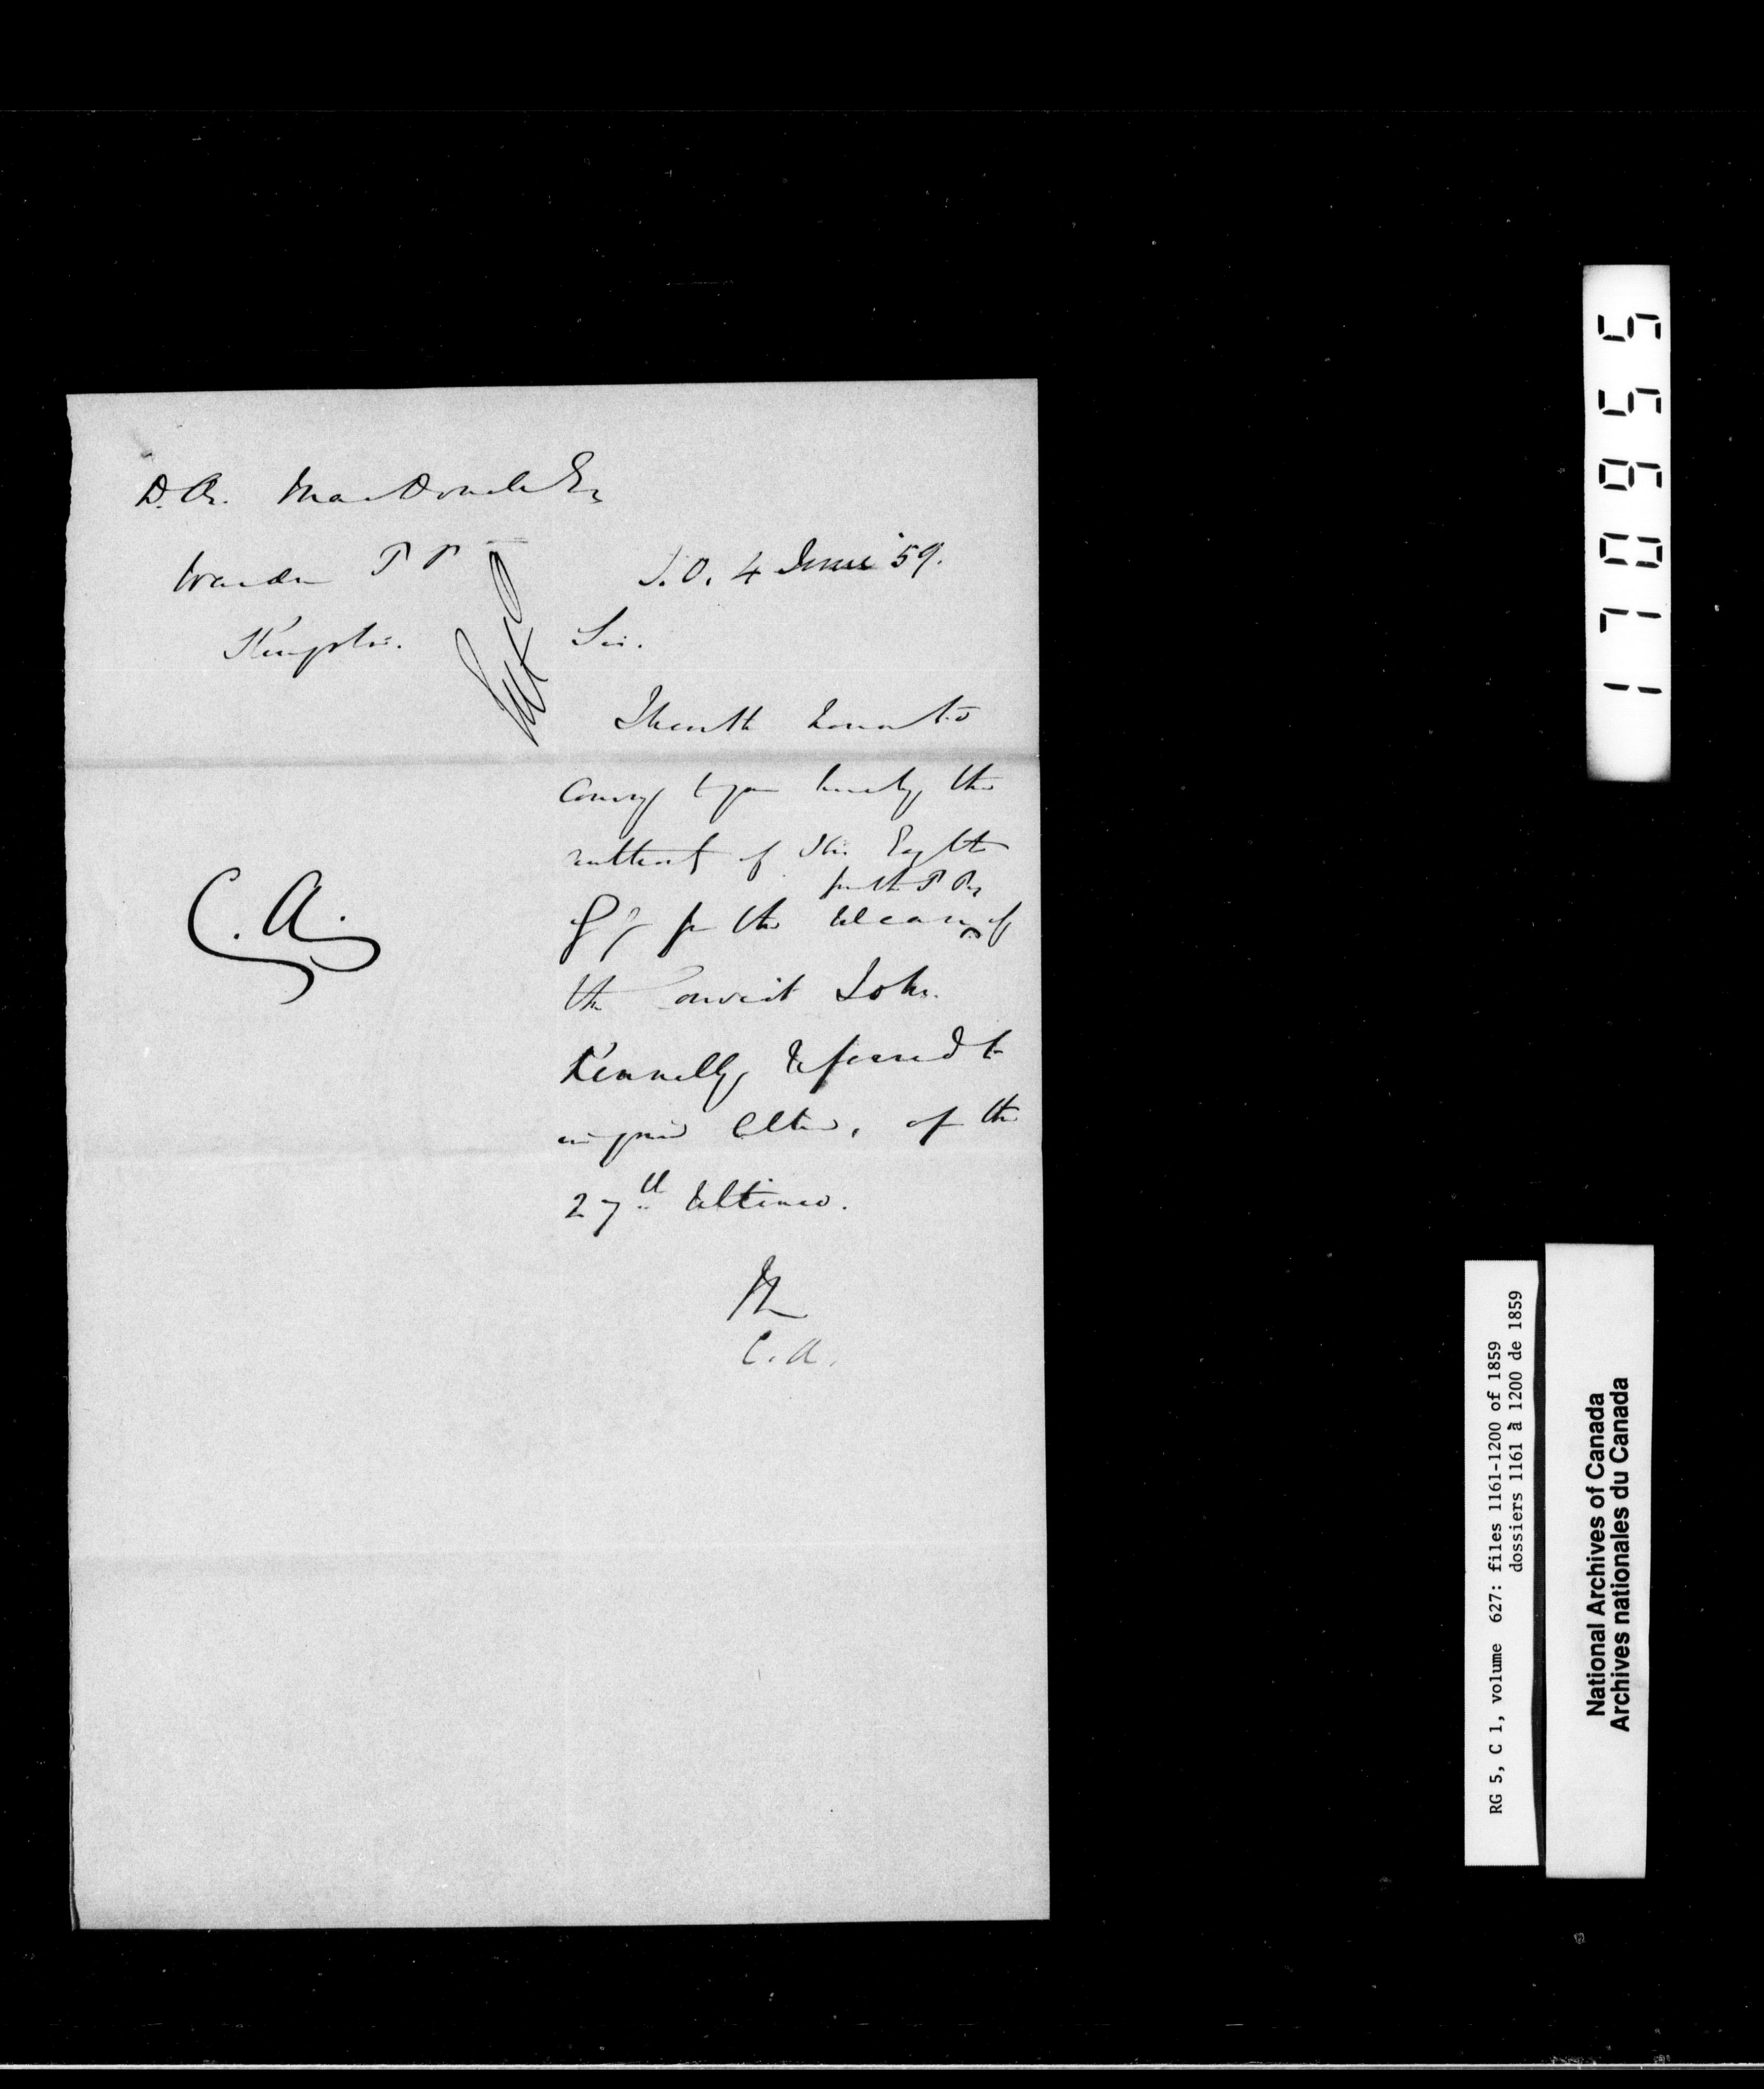 D. Æ. MacDonell Esq
Warden P P
Kingston.
S.O. 4 June '59.
Sir.
I have the honor to
convey to you hereby the
authority of His Excy the
from the P Py
for the release of
the Convict John
Kennelly referred to
in your letter, of the
27th Ultimo.
C.A.
C.A.
170955
RG 5, C 1, volume 627: files 1161-1200 of 1859
dossiers 1161 à 1200 de 1859
National Archives of Canada
Archives nationales du Canada